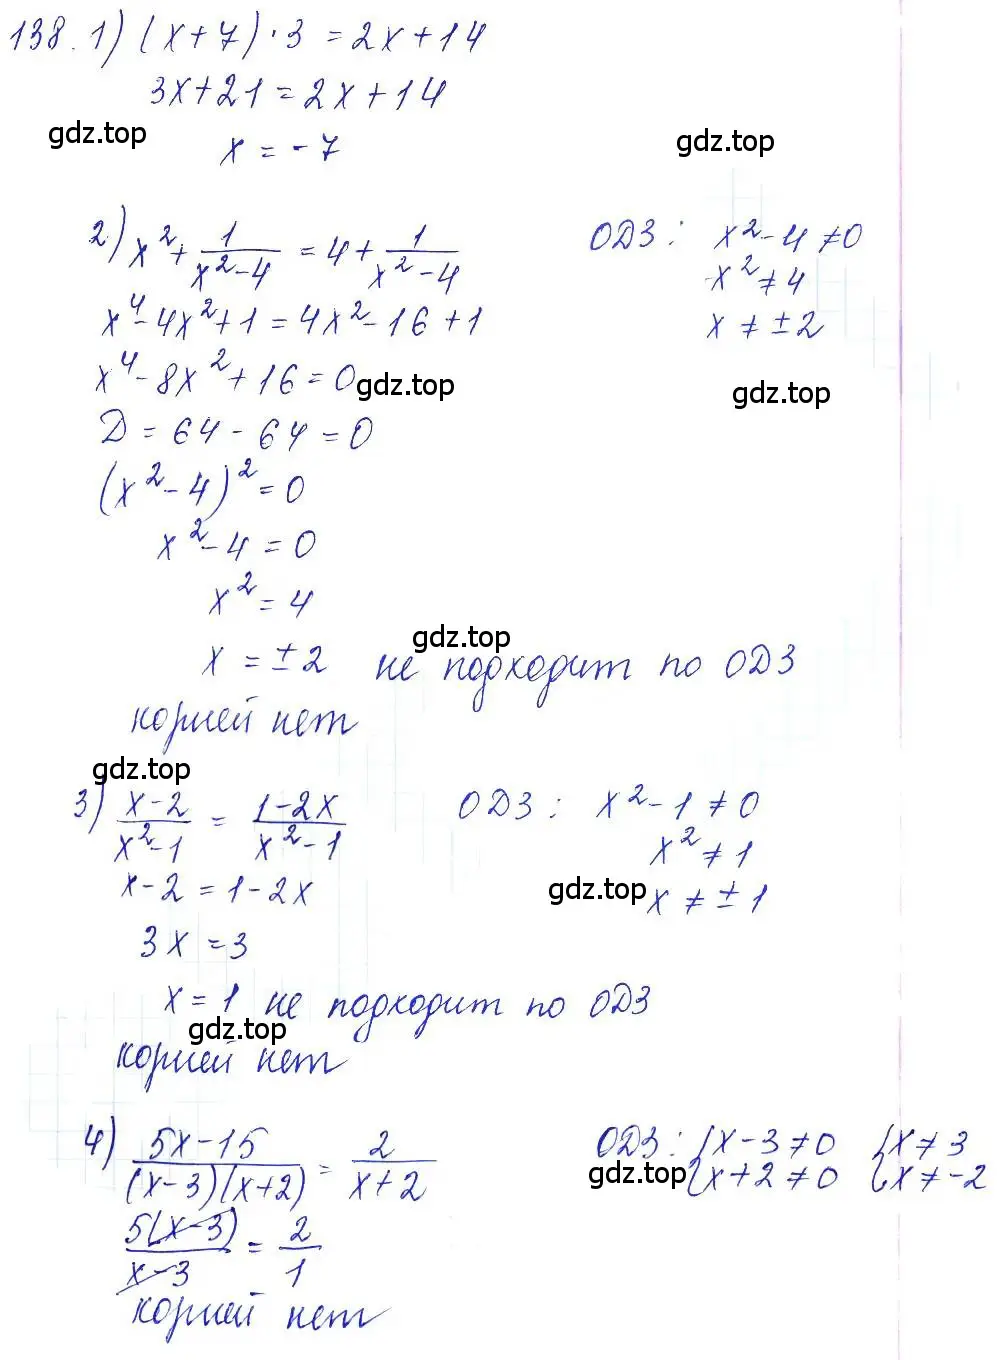 138. 1) (x+7)·3 = 2x+14
3x+21 = 2x+14
gdz.top
gdz.top
x = -7
2) x² + 1/(x²-4) = 4 + 1/(x²-4) ОДЗ: x²-4≠0
x²≠4
x⁴-4x²+1 = 4x²-16+1 x ≠ ±2
x⁴-8x²+16=0 gdz.top gdz.top
D = 64-64 = 0
(x²-4)² = 0
x²-4 = 0
x² = 4
gdz.top
x = ±2 не подходит по ОДЗ
корней нет
gdz.top
3) (x-2)/(x²-1) = (1-2x)/(x²-1) ОДЗ: x²-1≠0
x²≠1
x-2 = 1-2x gdz.top x ≠ ±1
3x = 3
x = 1 не подходит по ОДЗ
gdz.top
корней нет
4) (5x-15)/((x-3)(x+2)) = 2/(x+2) ОДЗ: {x-3≠0 {x≠3
gdz.top {x+2≠0 {x≠-2
5(x-3)/(x-3) = 2/1
корней нет